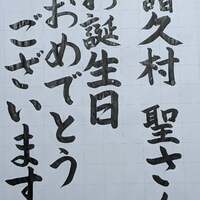 譜久村 聖さん
お誕生日
おめでとう
ございます